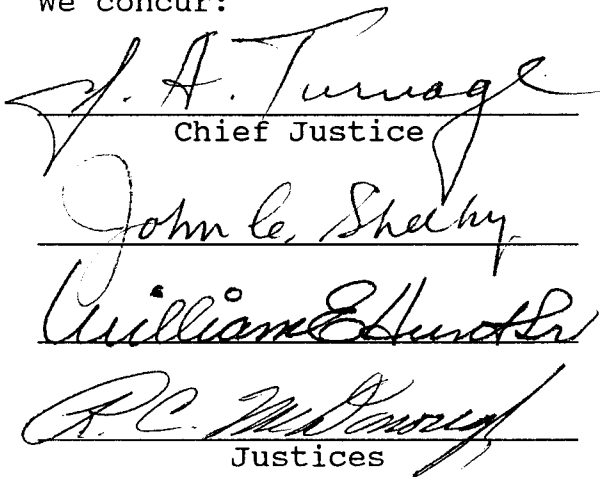 We concur:
J. A. Turnage
Chief Justice
John C. Sheehy
William E. Hunt Sr
R. C. McDonough
Justices